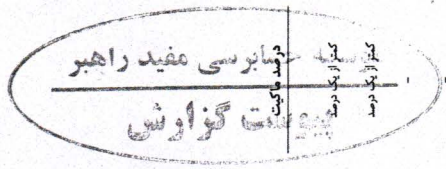 موسسه حسابرسی مفید راهبر
پیوست گزارش
درصد مالکیت
کمتر از یک درصد
کمتر از یک درصد
-
-